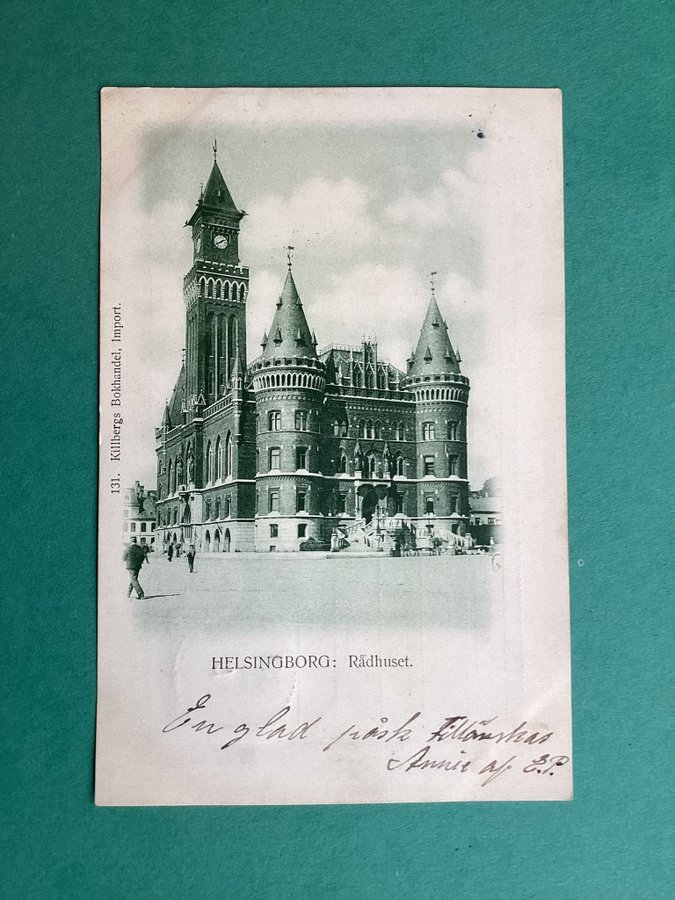 131. Killbergs Bokhandel, Import.
HELSINGBORG: Rådhuset.
En glad påsk tillönskas
Annie af E.P.